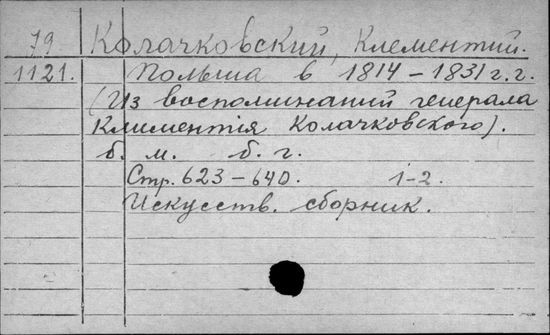 79 Колачковский, Клементий.
1121. Польша в 1814 – 1831 г.г.
(Из воспоминаний генерала
Климентія Колачковского).
б. м. б. г.
Стр. 623 – 640. 1-2.
Искусств. сборник.